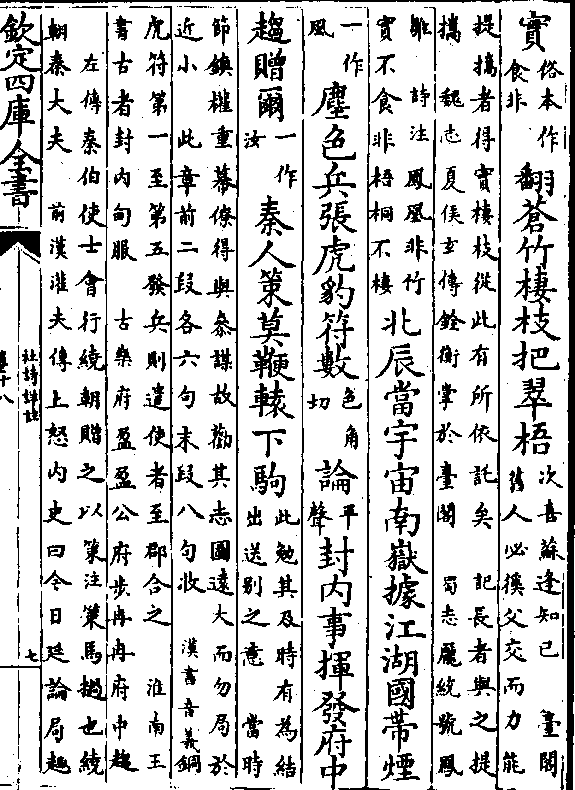 實俗本作
食非翻蒼竹棲枝把翠梧次喜蘇逢知已　臺閣
舊人必援父交而力能
提攜者得實棲枝從此有所依託矣　記長者與之提
攜　魏志夏侯玄傳銓衡掌於臺閣　蜀志龐統號鳳
雛　詩注鳳凰非竹
實不食非梧桐不棲北辰當宇宙南嶽據江湖國帶煙
一作
風塵色兵張虎豹符數色角
切論平
聲封内事揮發府中
趨贈爾一作
汝秦人策莫鞭轅下駒此勉其及時有為結
出送别之意　當時
節鎮權重幕僚得與叅謀故勸其志圖遠大而勿局於
近小　此章前二段各六句末段八句收　漢書音義銅
虎符第一至第五發兵則遣使者至郡合之　淮南王
書古者封内甸服　古樂府盈盈公府步冉冉府中趨
左傳秦伯使士會行繞朝贈之以策注策馬檛也繞
朝秦大夫　前漢灌夫傳上怒内史曰今日廷論局趣
欽定四庫全書
杜詩詳註
卷十八
七